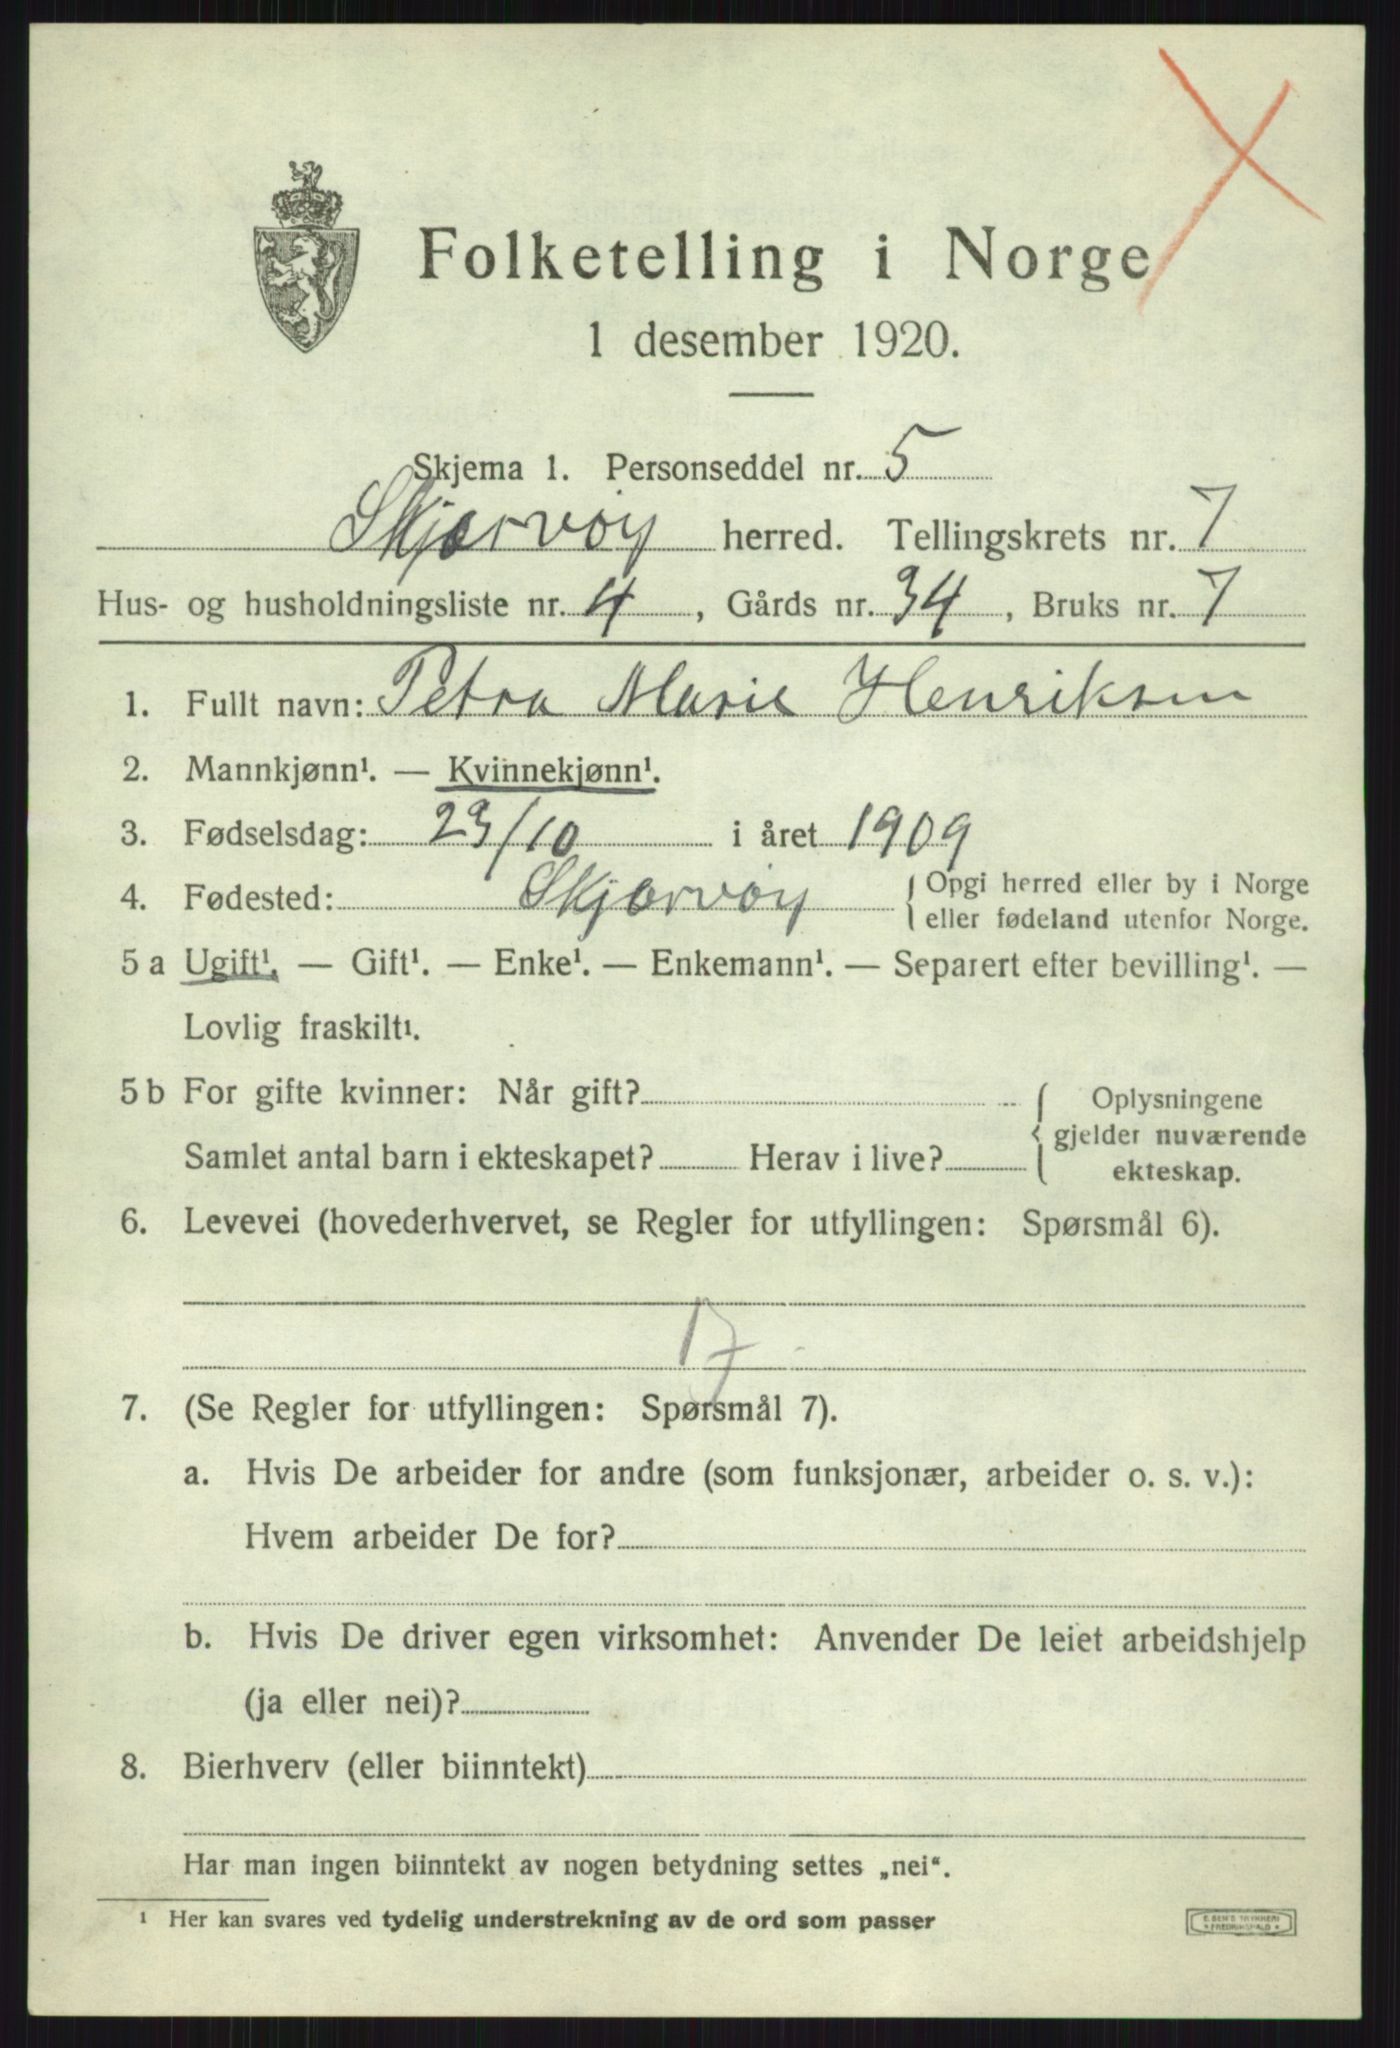 Folketelling i Norge
1 desember 1920.
Skjema 1. Personseddel nr. 5
Skjærvøy herred. Tellingskrets nr. 7
Hus- og husholdningsliste nr. 4, Gårds nr. 34, Bruks nr. 7
1. Fullt navn: Petra Marie Henriksen
2. Mannkjønn¹. — Kvinnekjønn¹.
3. Fødselsdag: 23/10 i året 1909
4. Fødested: Skjærvøy { Opgi herred eller by i Norge
eller fødeland utenfor Norge.
5 a Ugift¹. — Gift¹. — Enke¹. — Enkemann¹. — Separert efter bevilling¹. —
Lovlig fraskilt¹.
5 b For gifte kvinner: Når gift? { Oplysningene
gjelder nuværende
Samlet antal barn i ekteskapet? Herav i live? ekteskap.
6. Levevei (hovederhvervet, se Regler for utfyllingen: Spørsmål 6).
17
7. (Se Regler for utfyllingen: Spørsmål 7).
a. Hvis De arbeider for andre (som funksjonær, arbeider o. s. v.):
Hvem arbeider De for?
b. Hvis De driver egen virksomhet: Anvender De leiet arbeidshjelp
(ja eller nei)?
8. Bierhverv (eller biinntekt)
Har man ingen biinntekt av nogen betydning settes „nei“.
¹ Her kan svares ved tydelig understrekning av de ord som passer
E. SEM'S TRYKKERI
* FREDRIKSHALD *